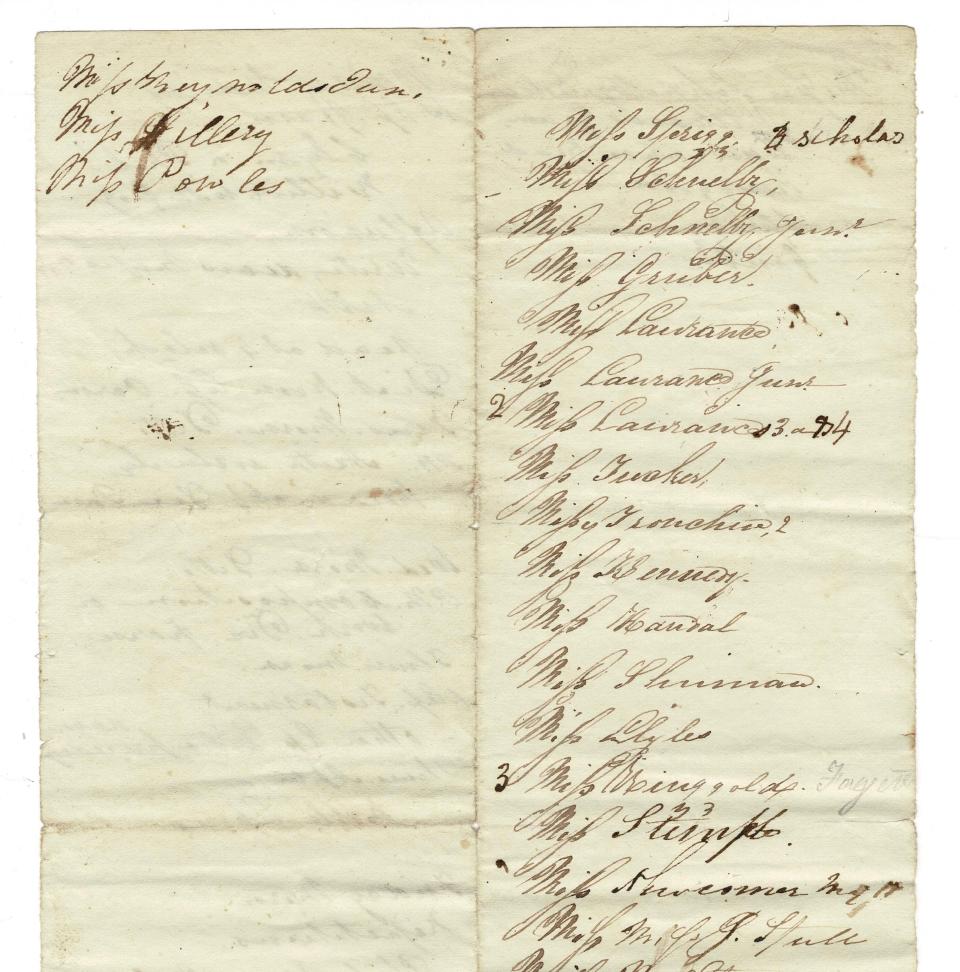 Miss Reynolds Jun.
Miss Tillery
Miss Powles
Miss Sprigg, 3 scholas
Miss Schnelby,
Miss Schnelby Junr
Miss Gruber.
Miss Laurance,
Miss Laurance Junr
2 Miss Laurances 3 a 4
Miss Tucker,
Missy Tronchin, 2
Miss Kennedy.
Miss Randal
Miss Shuman.
Miss Lyles
3 Miss Ringgold.
Miss Stumpf.
Miss Newcomer
Miss M. J. Stull